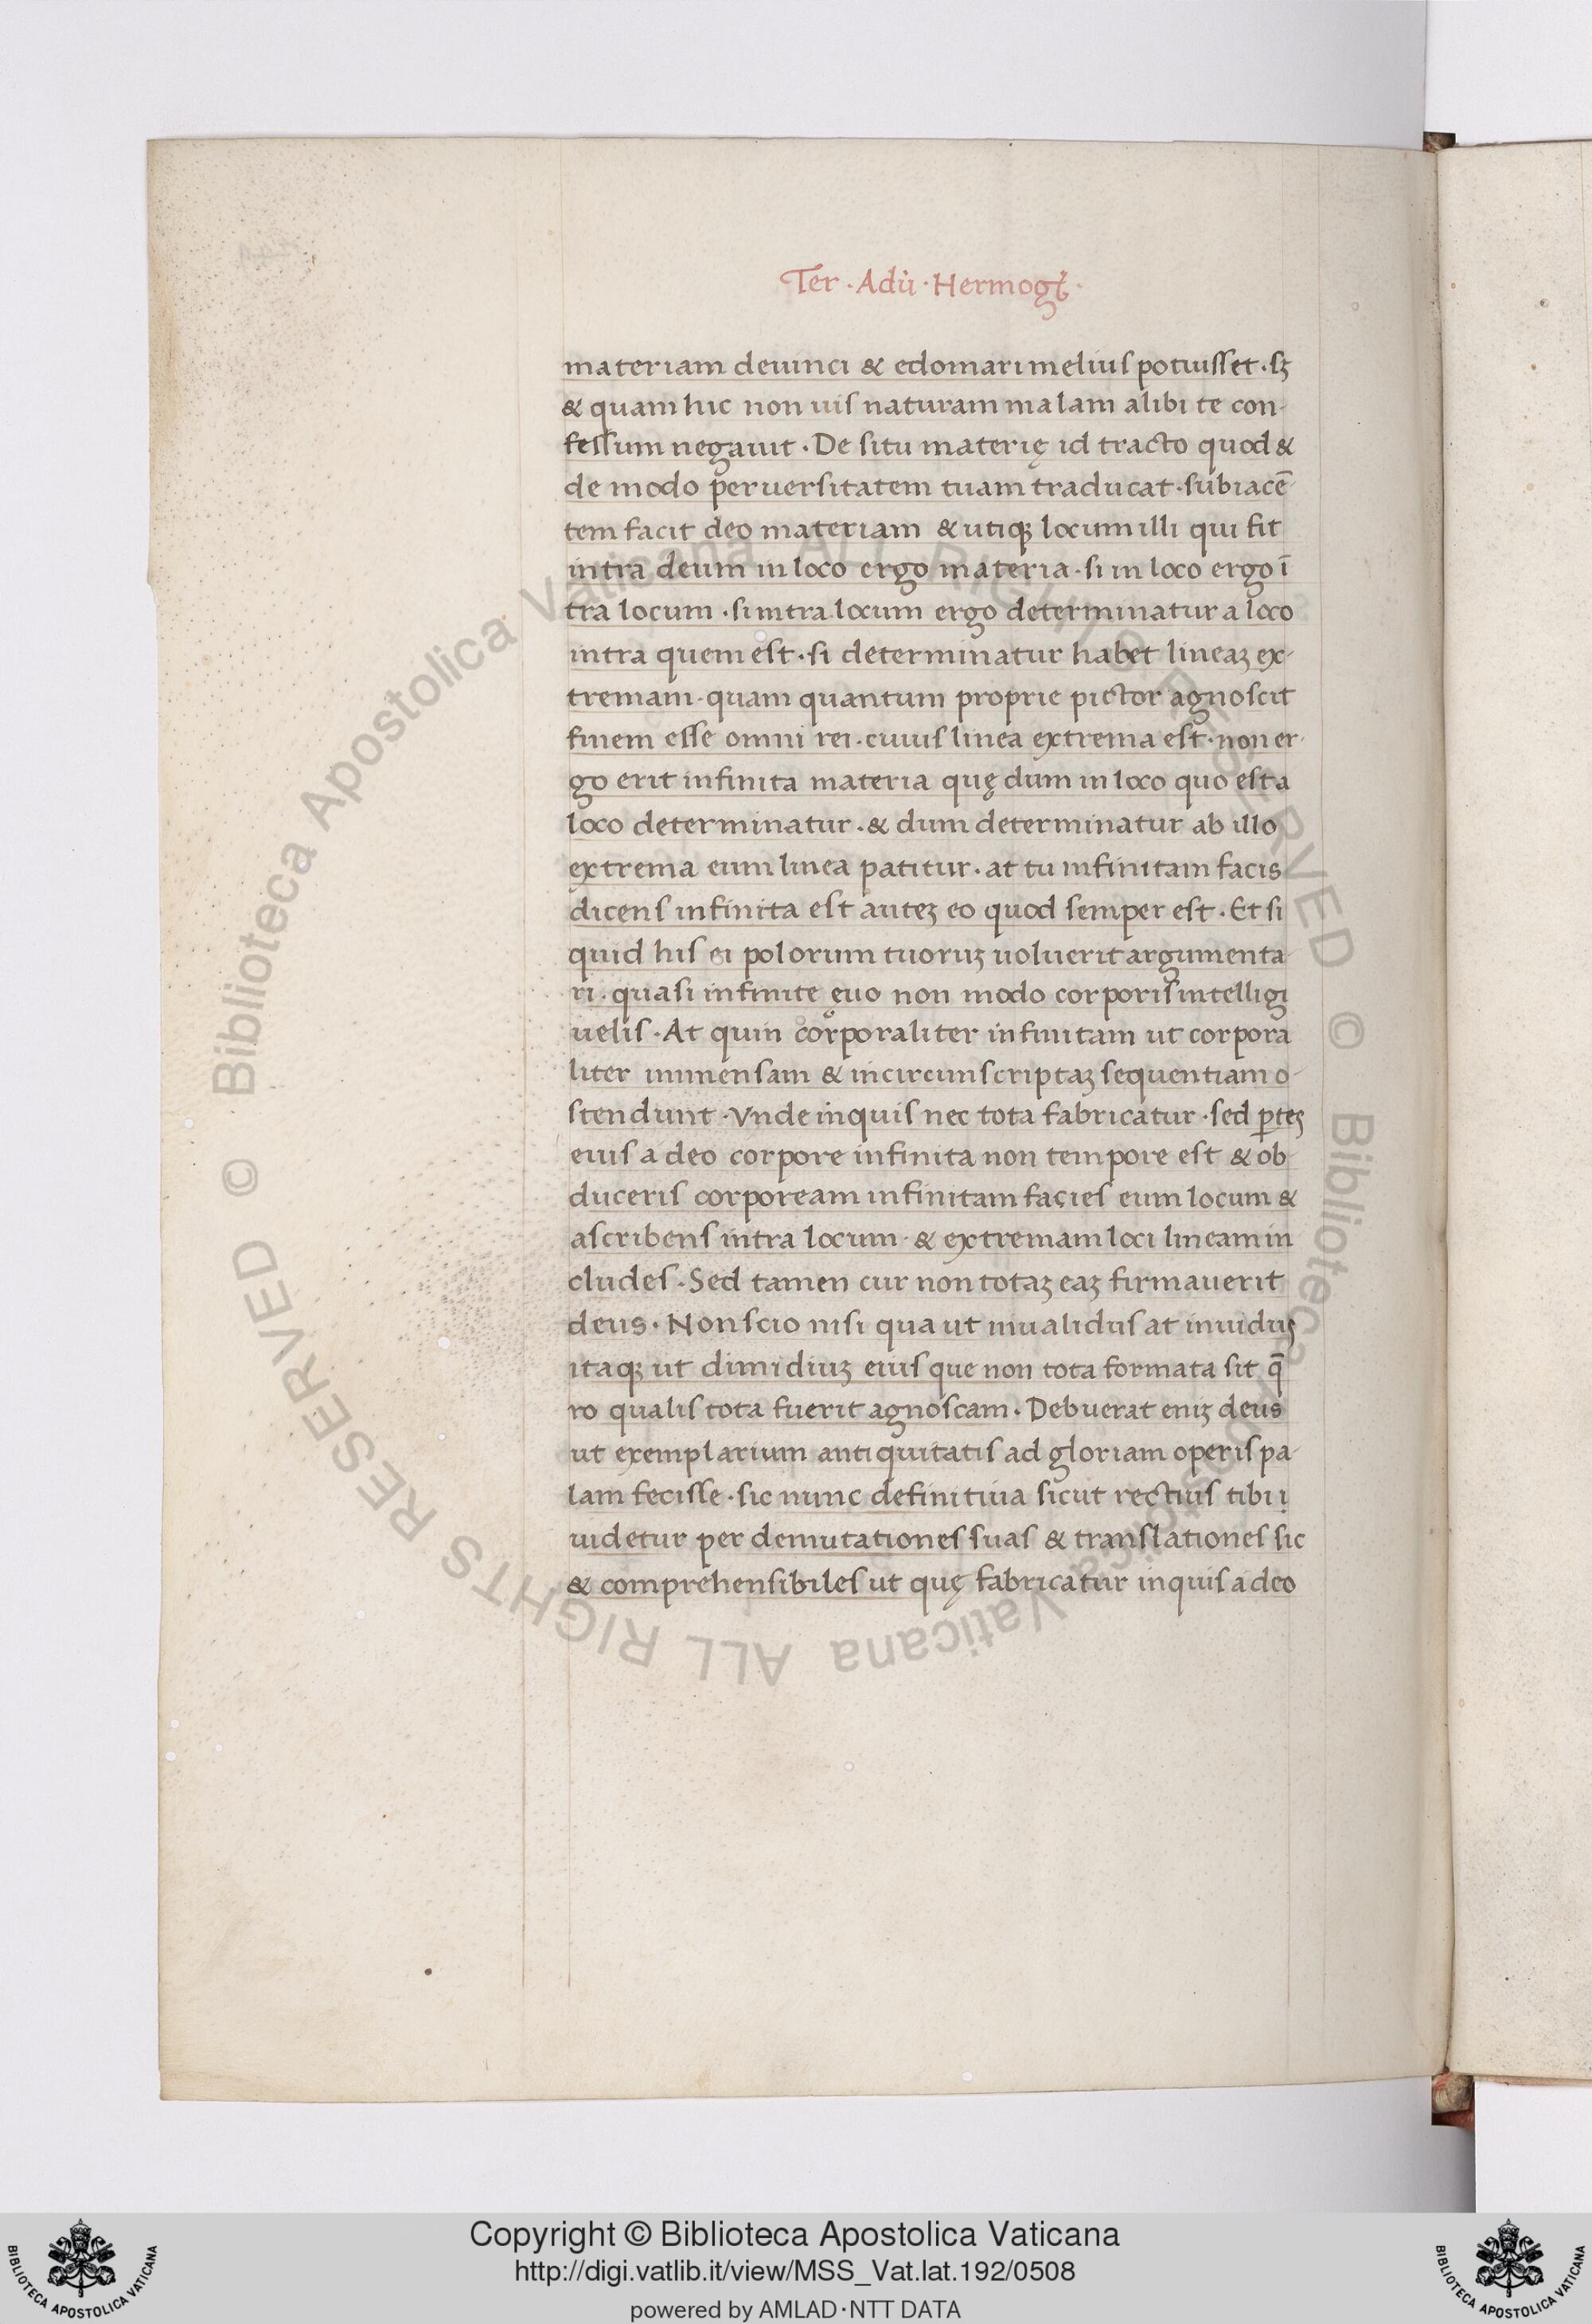 Ter · Adủ · Hermogẽ ·
materiam deuinci & edomari melius potuisset · sȝ
& quam hic non uis naturam malam alibi te con-
fessum negauit · De situ materię id tracto quod &
de modo peruersitatem tuam traducat · subiacē-
tem facit deo materiam & utiqȝ locum illi qui fit
intra deum in loco ergo materia · si in loco ergo ī
tra locum · si intra locum ergo determinatur a loco
intra quem est · si determinatur habet lineaȝ ex-
tremam · quam quantum proprie pictor agnoscit
finem esse omni rei · cuius linea extrema est · non er-
go erit infinita materia quę dum in loco quo est a
loco determinatur · & dum determinatur ab illo
extrema eum linea patitur · at tu infinitam facis
dicens infinita est auteȝ eo quod semper est · Et si
quid his ei polorum tuoruȝ uoluerit argumenta-
ri · quasi infinite ęuo non modo corporis intelligi
uelis · At quin corporaliter infinitam ut corpora
liter immensam & incircumscriptaȝ sequentiam o-
stendunt · Vnde inquis nec tota fabricatur · sed ꝑtes
eius a deo corpore infinita non tempore est & ob-
duceris corpoream infinitam facies eum locum &
ascribens intra locum · & extremam loci lineam in
cludes · Sed tamen cur non totaȝ eaȝ firmauerit
deus · Non scio nisi qua ut inualidus at inuidus
itaqȝ ut dimidiuȝ eius que non tota formata sit q̄
ro qualis tota fuerit agnoscam · Debuerat eniȝ deus
ut exemplarium antiquitatis ad gloriam operis pa-
lam fecisse · sic nunc definitiua sicut rectius tibi ị
uidetur per demutationes suas & translationes sic
& comprehensibiles ut quę fabricatur inquis a deo
© Biblioteca Apostolica Vaticana ALL RIGHTS RESERVED © Biblioteca Apostolica Vaticana ALL RIGHTS RESERVED
Copyright © Biblioteca Apostolica Vaticana
http://digi.vatlib.it/view/MSS_Vat.lat.192/0508
powered by AMLAD·NTT DATA
BIBLIOTECA APOSTOLICA VATICANA
BIBLIOTECA APOSTOLICA VATICANA